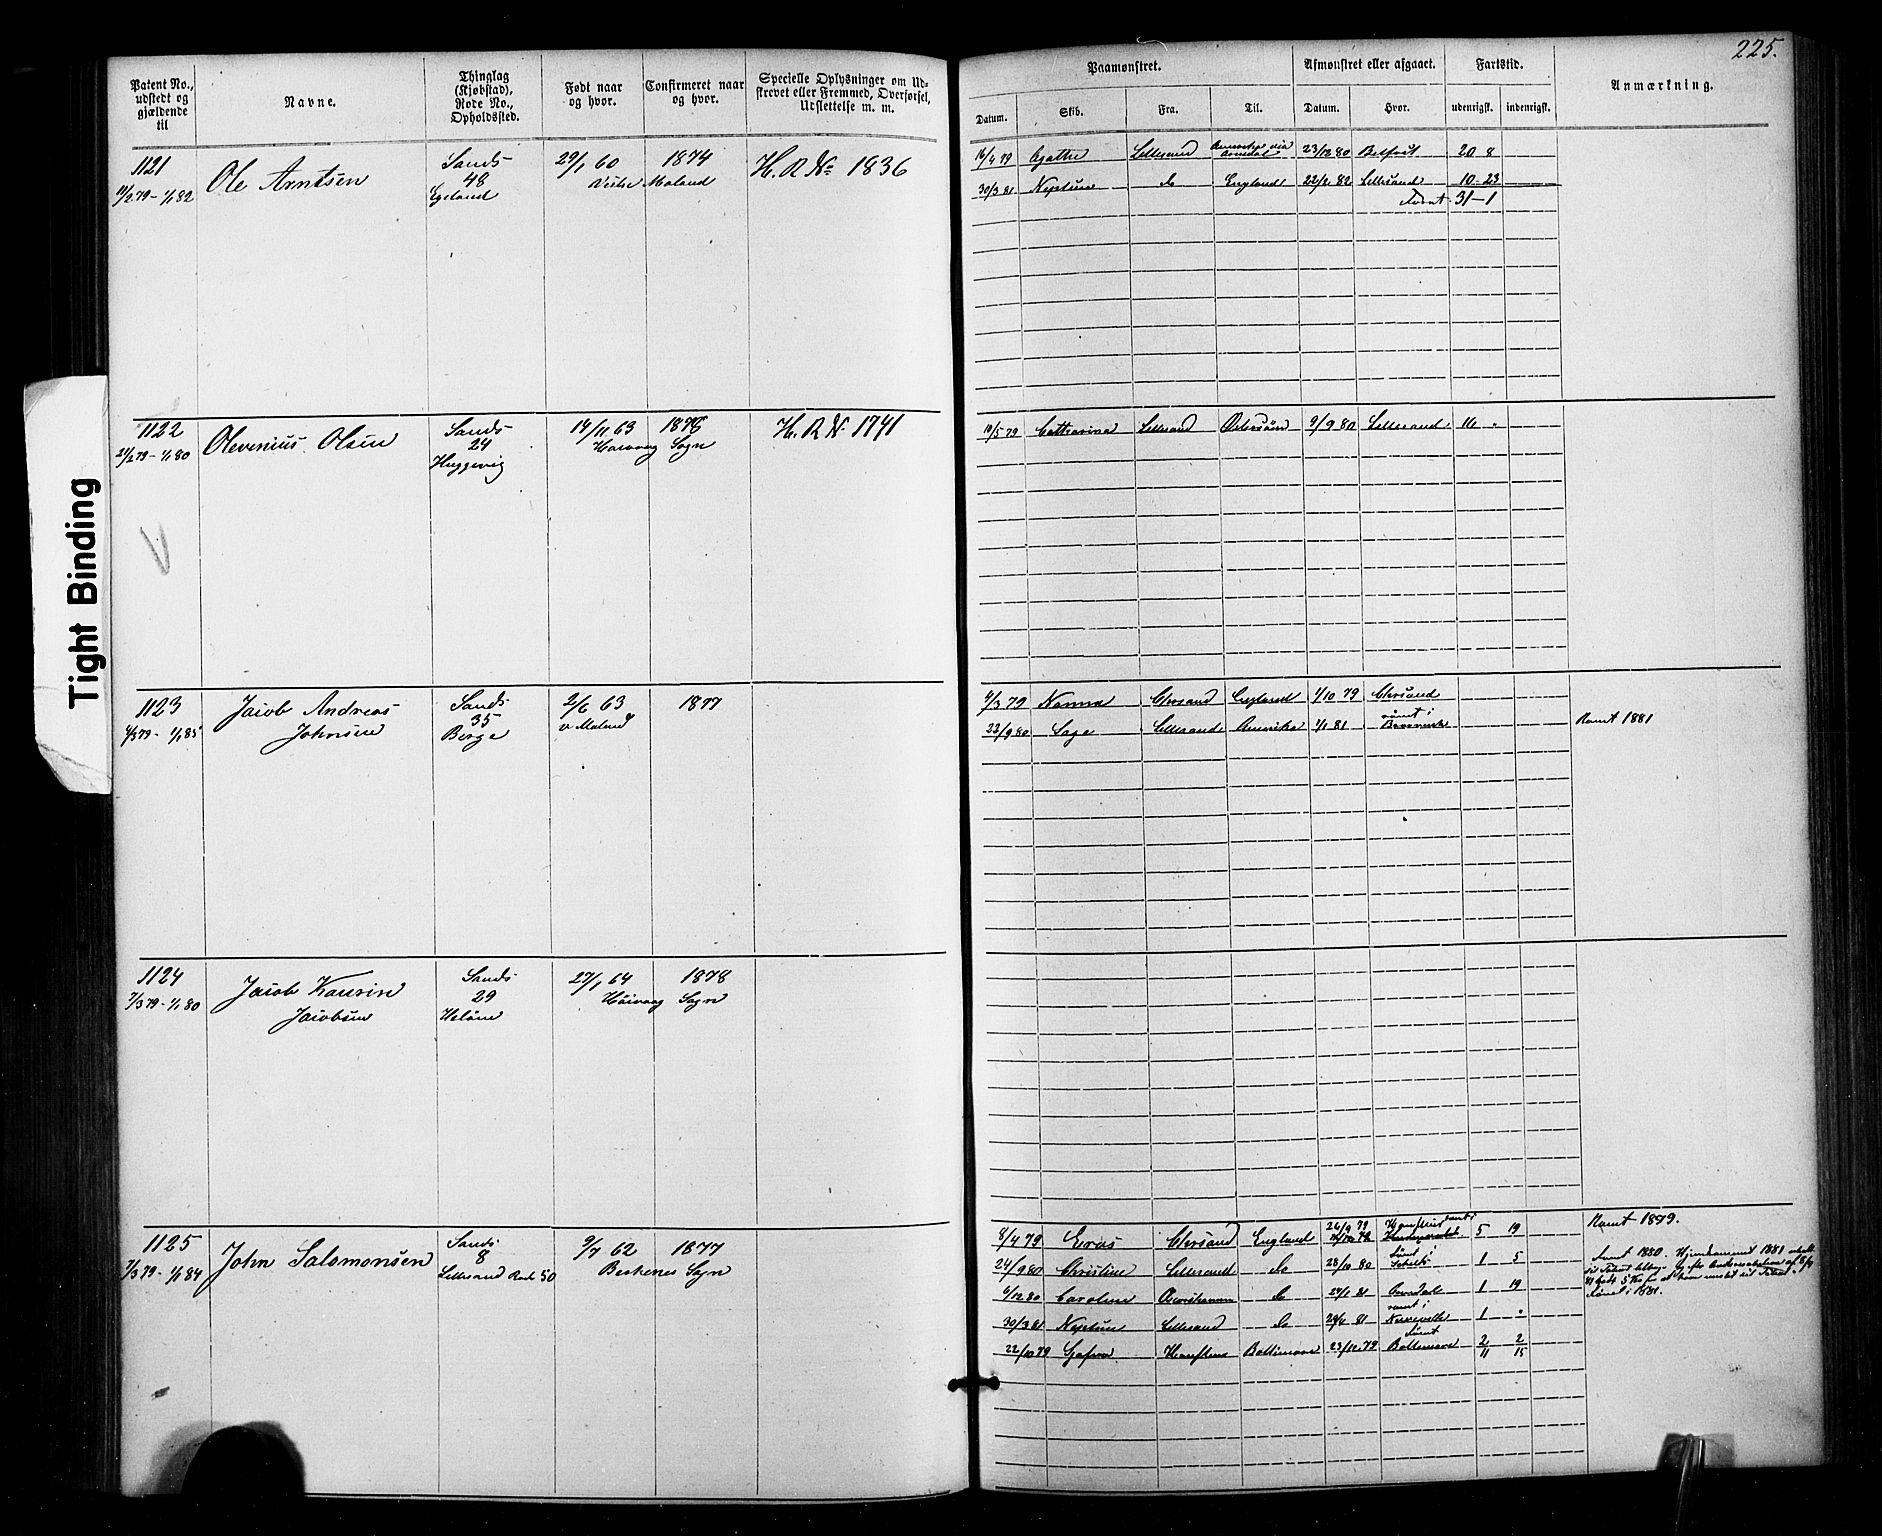 225.
Patent No., udstedt og gjældende til
Navne.
Thinglag (Kjøbstad), Rode No., Opholdssted.
Født naar og hvor.
Confirmeret naar og hvor.
Specielle Oplysninger om Udskrevet eller Fremmed, Overførsel, Udslettelse m. m.
Paamønstret.
Afmønstret eller afgaaet.
Fartstid.
Anmærkning.
Datum. Skib. Fra. Til. Datum. Hvor. udenrigsk. indenrigsk.
1121 Ole Arntsen Sands 29/1 60 1874 H. R. No 1836
11/2 79 - 1/1 82 48 Vestre Moland
Egeland
16/4 79 Agathe Lillesand Arendal 23/12 80 Belfast 20 8
30/3 81 Neptun do England 22/2 82 Lillesand 10 - 23
31 - 1
1122 Olevenius Olsen Sands 19/11 63 1878 H. R. No 1741
21/2 79 - 1/1 80 24 Høivaag Sogn
Huggevig
10/5 79 Catharina Lillesand 9/9 80 Lillesand 16 "
1123 Jacob Andreas Sands 2/6 63 1877
4/3 79 - 1/1 85 Johnsen 35 v. Moland
Berge
4/3 79 Nanna Chrsand England 1/10 79 Chrsand
22/9 80 Saga Lillesand Amerika 1/1 81 rømt i Brunswick Rømt 1881
1124 Jacob Kausin Sands 27/1 64 1878
7/3 79 - 1/1 80 Jacobsen 29 Høivaag Sogn
1125 John Salomonsen Sands 9/7 62 1877
7/3 79 - 1/1 84 8 Birkenes Sogn
Lillesand Rode 50
8/4 79 Eros Chrsand England 26/9 79 5 19 Rømt 1879.
24/9 80 Christine Lillesand do 28/10 80 Rømt i Shields 1 5
6/12 80 Caroline do 24/1 81 Arendal 1 19
30/3 81 Neptun Lillesand do 81 rømt i 1 "
22/10 79 Baltimore 23/12 79 Rømt Baltimore 2 2
11 15
Rømt 1880. Hjemkommet 1881
Rømt i 1881.
Tight Binding